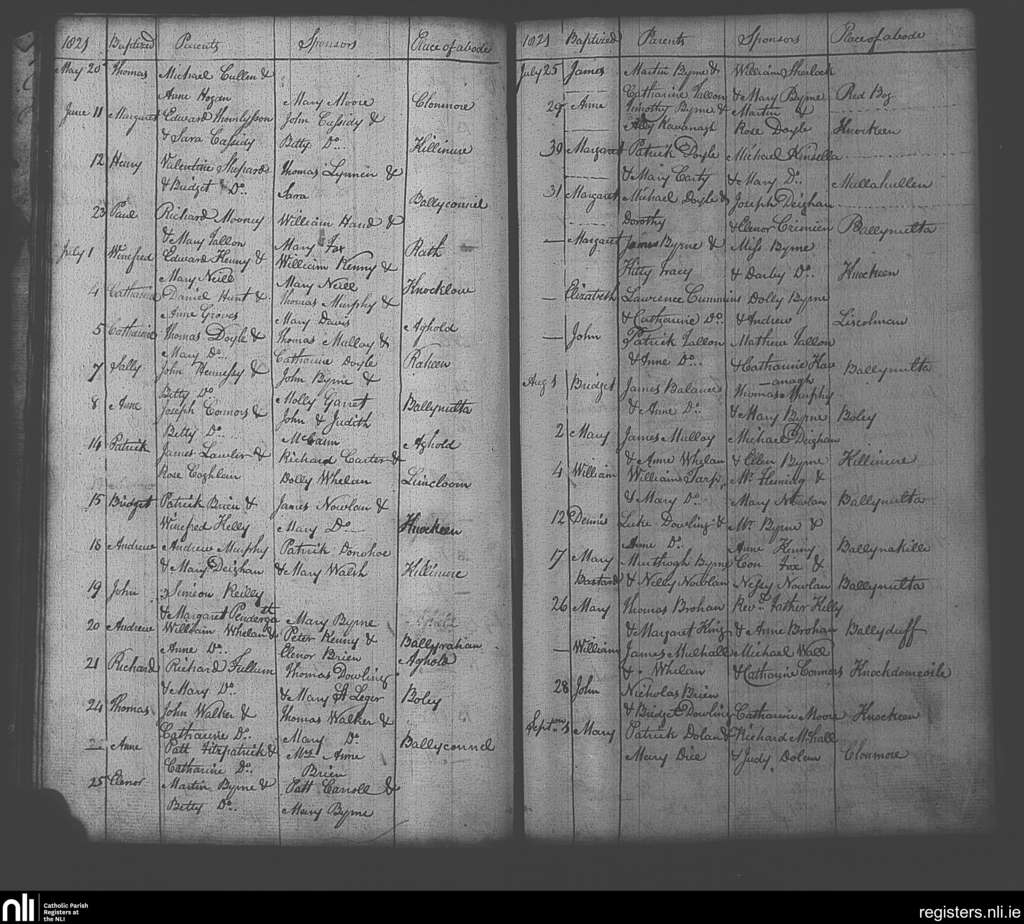 1821 Baptized Parents Sponsors Place of abode
May 20 Thomas Michael Cullen &
Anne Hogan Mary Moore Clonmore
June 11 Margaret Edward John Cassidy &
& Sara Cassidy Betty Do. Killinure
12 Henry Valentine Shepard Thomas &
& Bridget Do. Sara Ballyconnel
23 Paul Richard Mooney William Hand &
& Mary Tallon Mary Fox Rath
July 1 Winefred Edward Kenny & William Kenny &
Mary Neill Mary Neill Knocklow
4 Catharine Daniel Hunt & Thomas Murphy &
Anne Groves Mary Davis
5 Catharine Thomas Doyle & Thomas Mulloy & Aghold
Mary Do. Catharine Doyle
7 Sally John Hennessy & John Byrne & Raheen
Betty Do Molly Garret
8 Anne Joseph Connors & John & Judith Ballynulta
Betty Do. McCann
14 Patrick James Lawler & Richard Carter & Aghold
Rose Coghlan Dolly Whelan
15 Bridget Patrick Brien & James Nowlan &
Winefred Kelly Mary Do Knockeen
18 Andrew Andrew Murphy Patrick Donohoe
& Mary Deighan & Mary Walsh Killinure
19 John Simeon Reilly
& Margaret Mary Byrne
20 Andrew William Whelan & Peter Kenny & Ballyrahan
Anne Do. Elenor Brien Aghold
21 Richard Richard Thomas Dowling
& Mary Do. & Mary St Leger Boley
24 Thomas John Walker & Thomas Walker &
Catharine Do. Mary Do. Ballyconnel
Anne Patt Fitzpatrick & Mrs Anne
Catharine Do. Brien
25 Elenor Martin Byrne & Patt Carroll &
Betty Do. Mary Byrne
1821 Baptized Parents Sponsors Place of abode
July 25 James Martin Byrne & William Sherlock
Catharine Tallon & Mary Byrne Red Bog
29 Anne Timothy Byrne & Martin &
Ally Kavanagh Rose Doyle Knockeen
30 Margaret Patrick Doyle Michael Kinsella
& Mary Carty & Mary Do. Mullahullen
31 Margaret Michael Doyle & Joseph Deighan
Dorothy & Elenor Ballynulta
— Margaret James Byrne & Miss Byrne
Kitty Tracy & Darby Do. Knockeen
— Elizabeth Lawrence Cummins Dolly Byrne
& Catharine Do. & Andrew Liscolman
— John Patrick Tallon Mathew Tallon
& Anne Do. & Catharine Kav
anagh Ballynulta
Aug 1 Bridget James Thomas Murphy
& Anne Do. & Mary Byrne Boley
2 Mary James Mulloy Michael Deighan
& Anne Whelan & Ellen Byrne Killinure
4 William William Mr. Fleming &
& Mary Do. Mary Nowlan Ballynulta
12 Dennis Luke Dowling & Mr Byrne &
Anne Do. Anne Kenny Ballynakille
17 Mary Murthogh Byrne Con Fox &
Bastard & Nelly Nowlan Nessy Nowlan Ballynulta
26 Mary Thomas Brohan Revd. Father Kelly
& Margaret King & Anne Brohan Ballyduff
— William James Mulhall Michael Wall
& Whelan & Catharine Connors
28 John Nicholas Brien
& Bridget Dowling Catharine Moore Knockeen
Septem 1 Mary Patrick Dolan & Richard
Mary & Judy Dolan Clonmore
nli Catholic Parish
Registers at
the NLI
registers.nli.ie